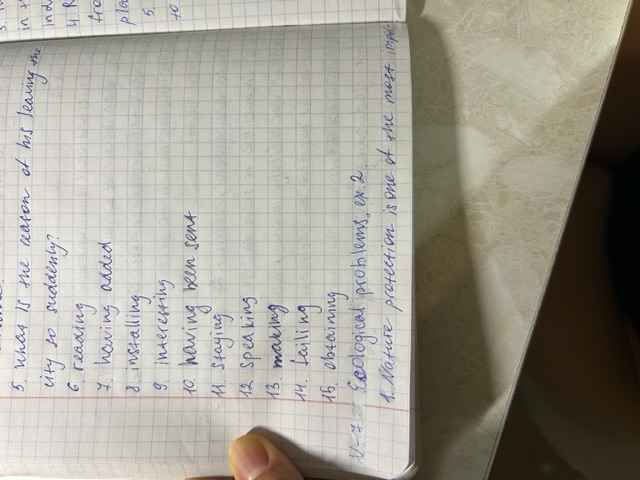 5. What is the reason of his leaving the
city so suddenly?
6. reading
7. having added
8. installing
9. interesting
10. having been sent
11. staying
12. speaking
13. making
14. failling
15. obtaining
V-7 Ecological problems, ex. 2.
1. Nature protection is one of the most